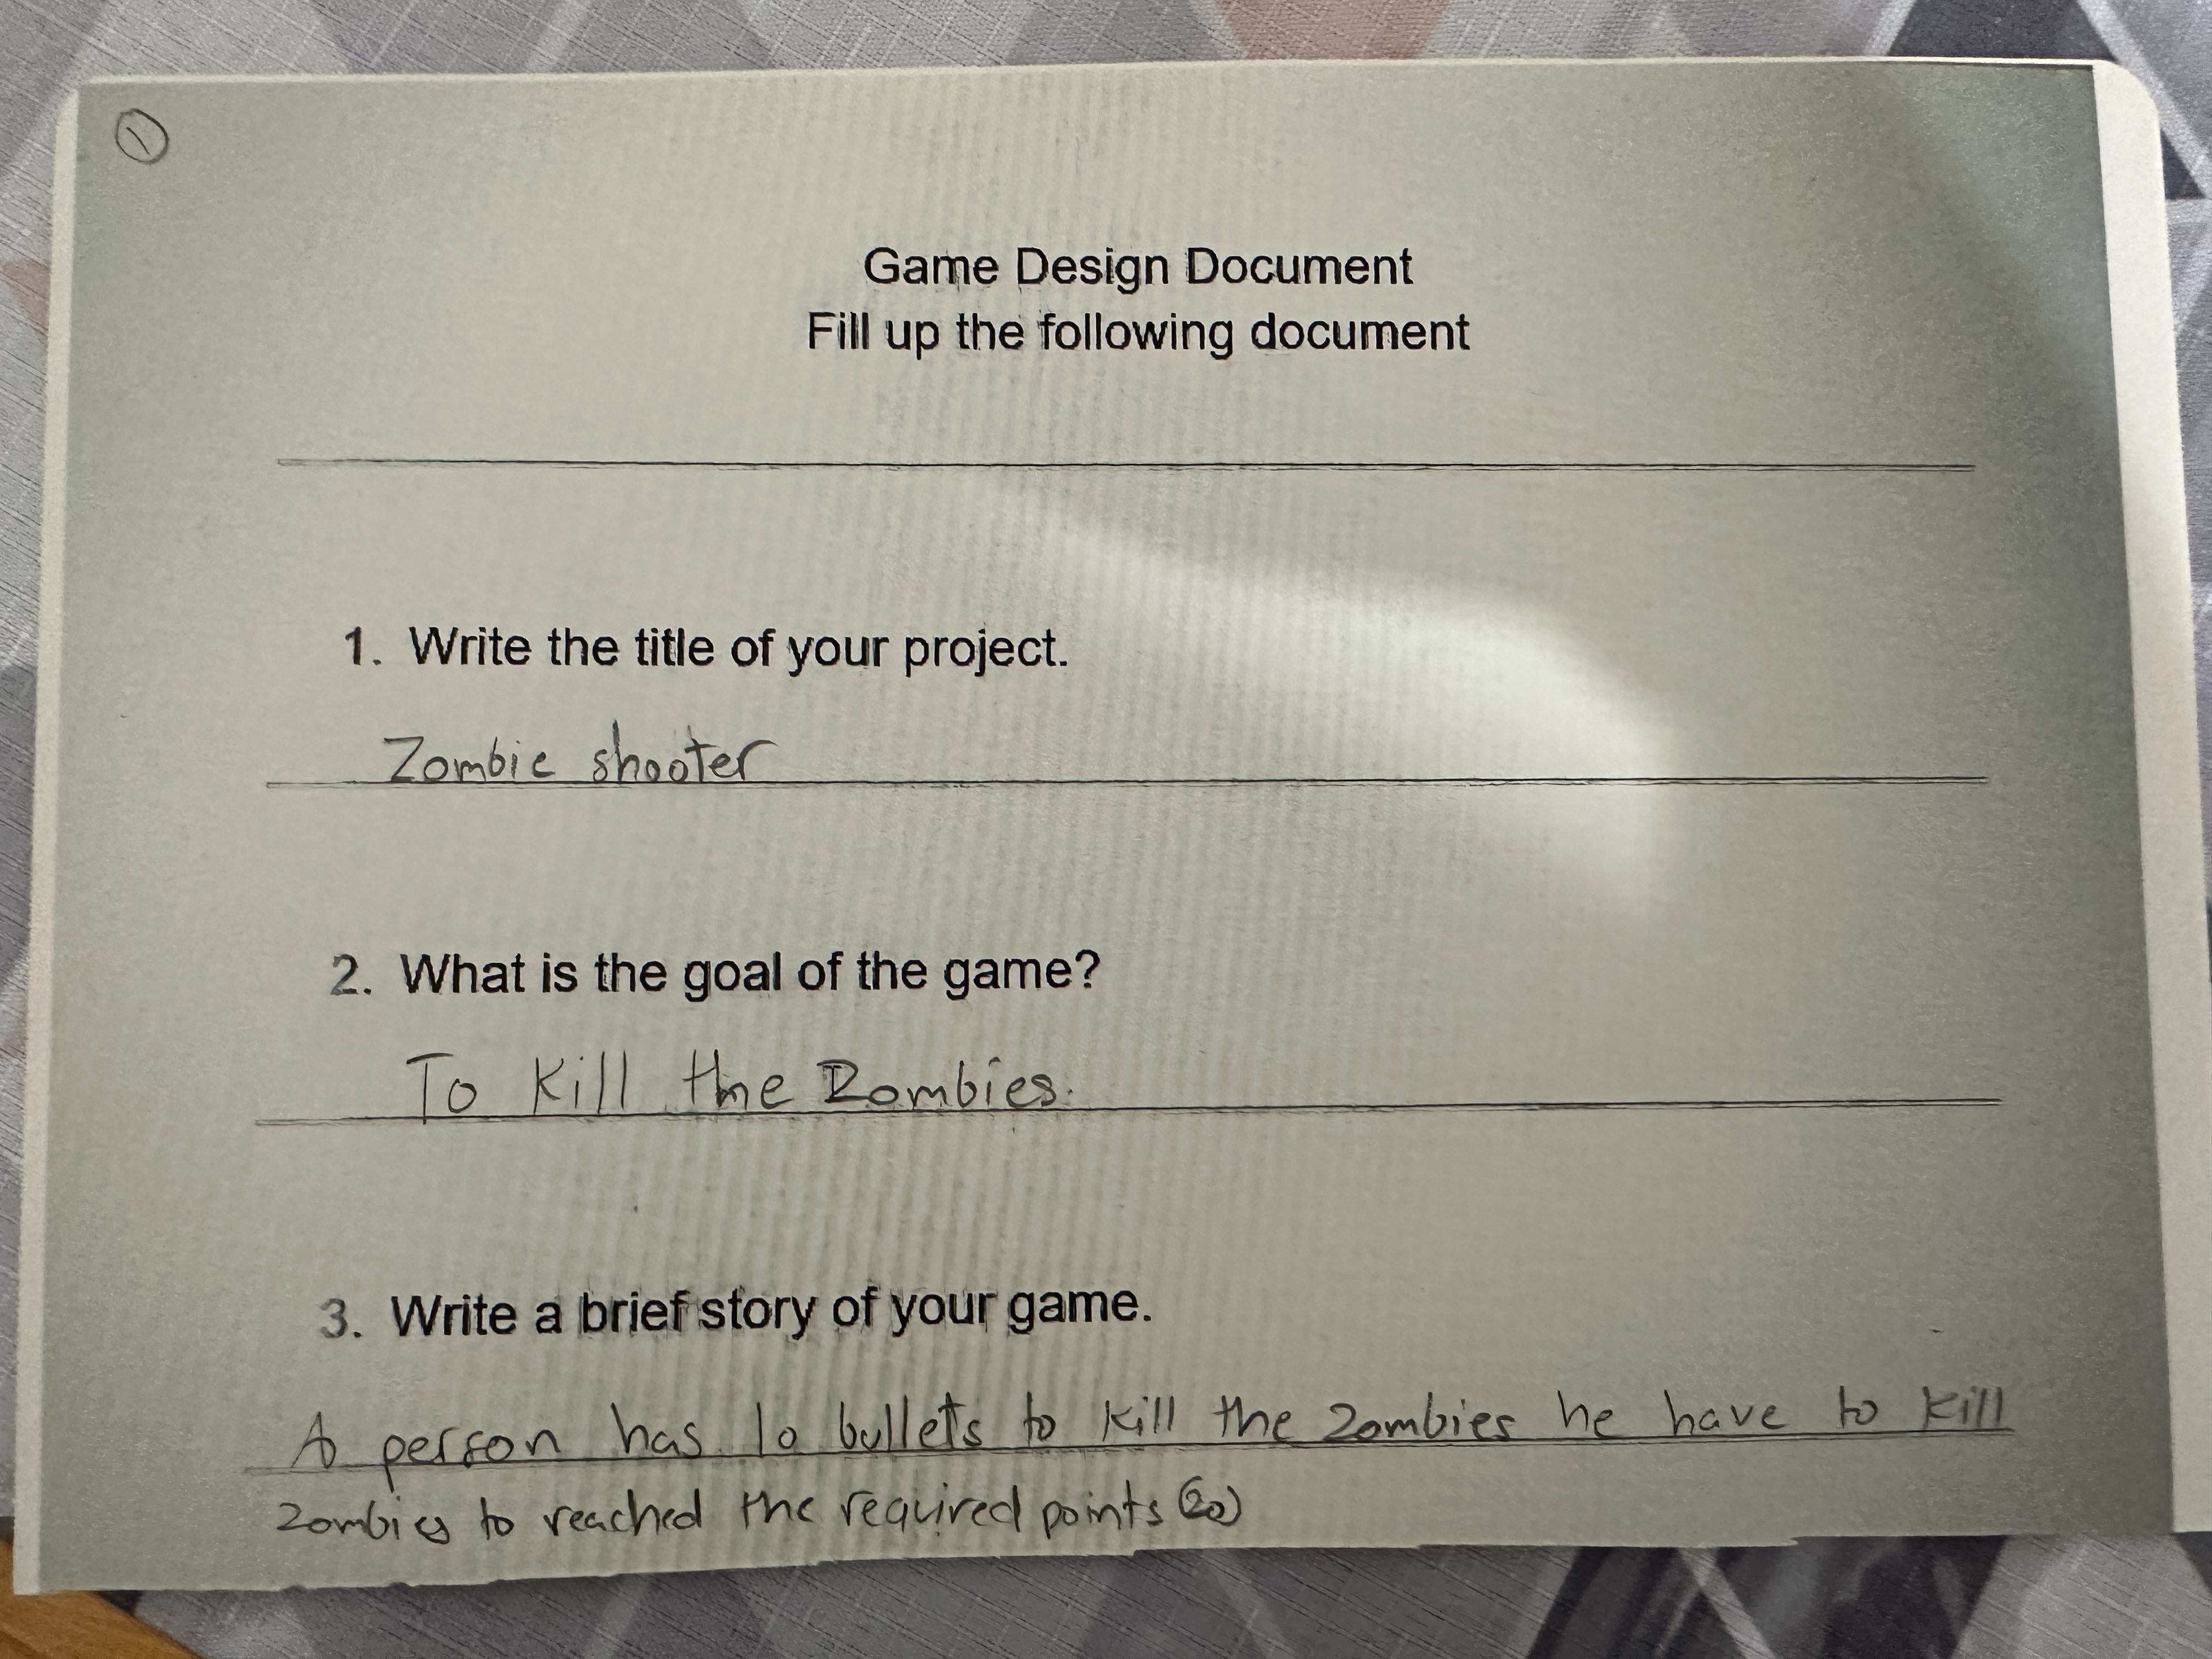 1
Game Design Document
Fill up the following document
1. Write the title of your project.
Zombie shooter
2. What is the goal of the game?
To kill the Zombies.
3. Write a brief story of your game.
A person has 10 bullets to kill the zombies he have to kill
zombies to reached the required points (20)